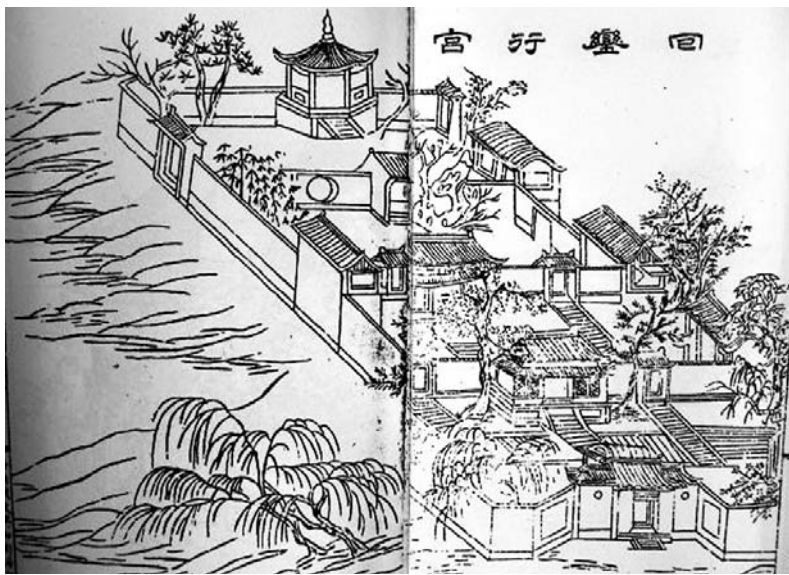 回鑾行宮